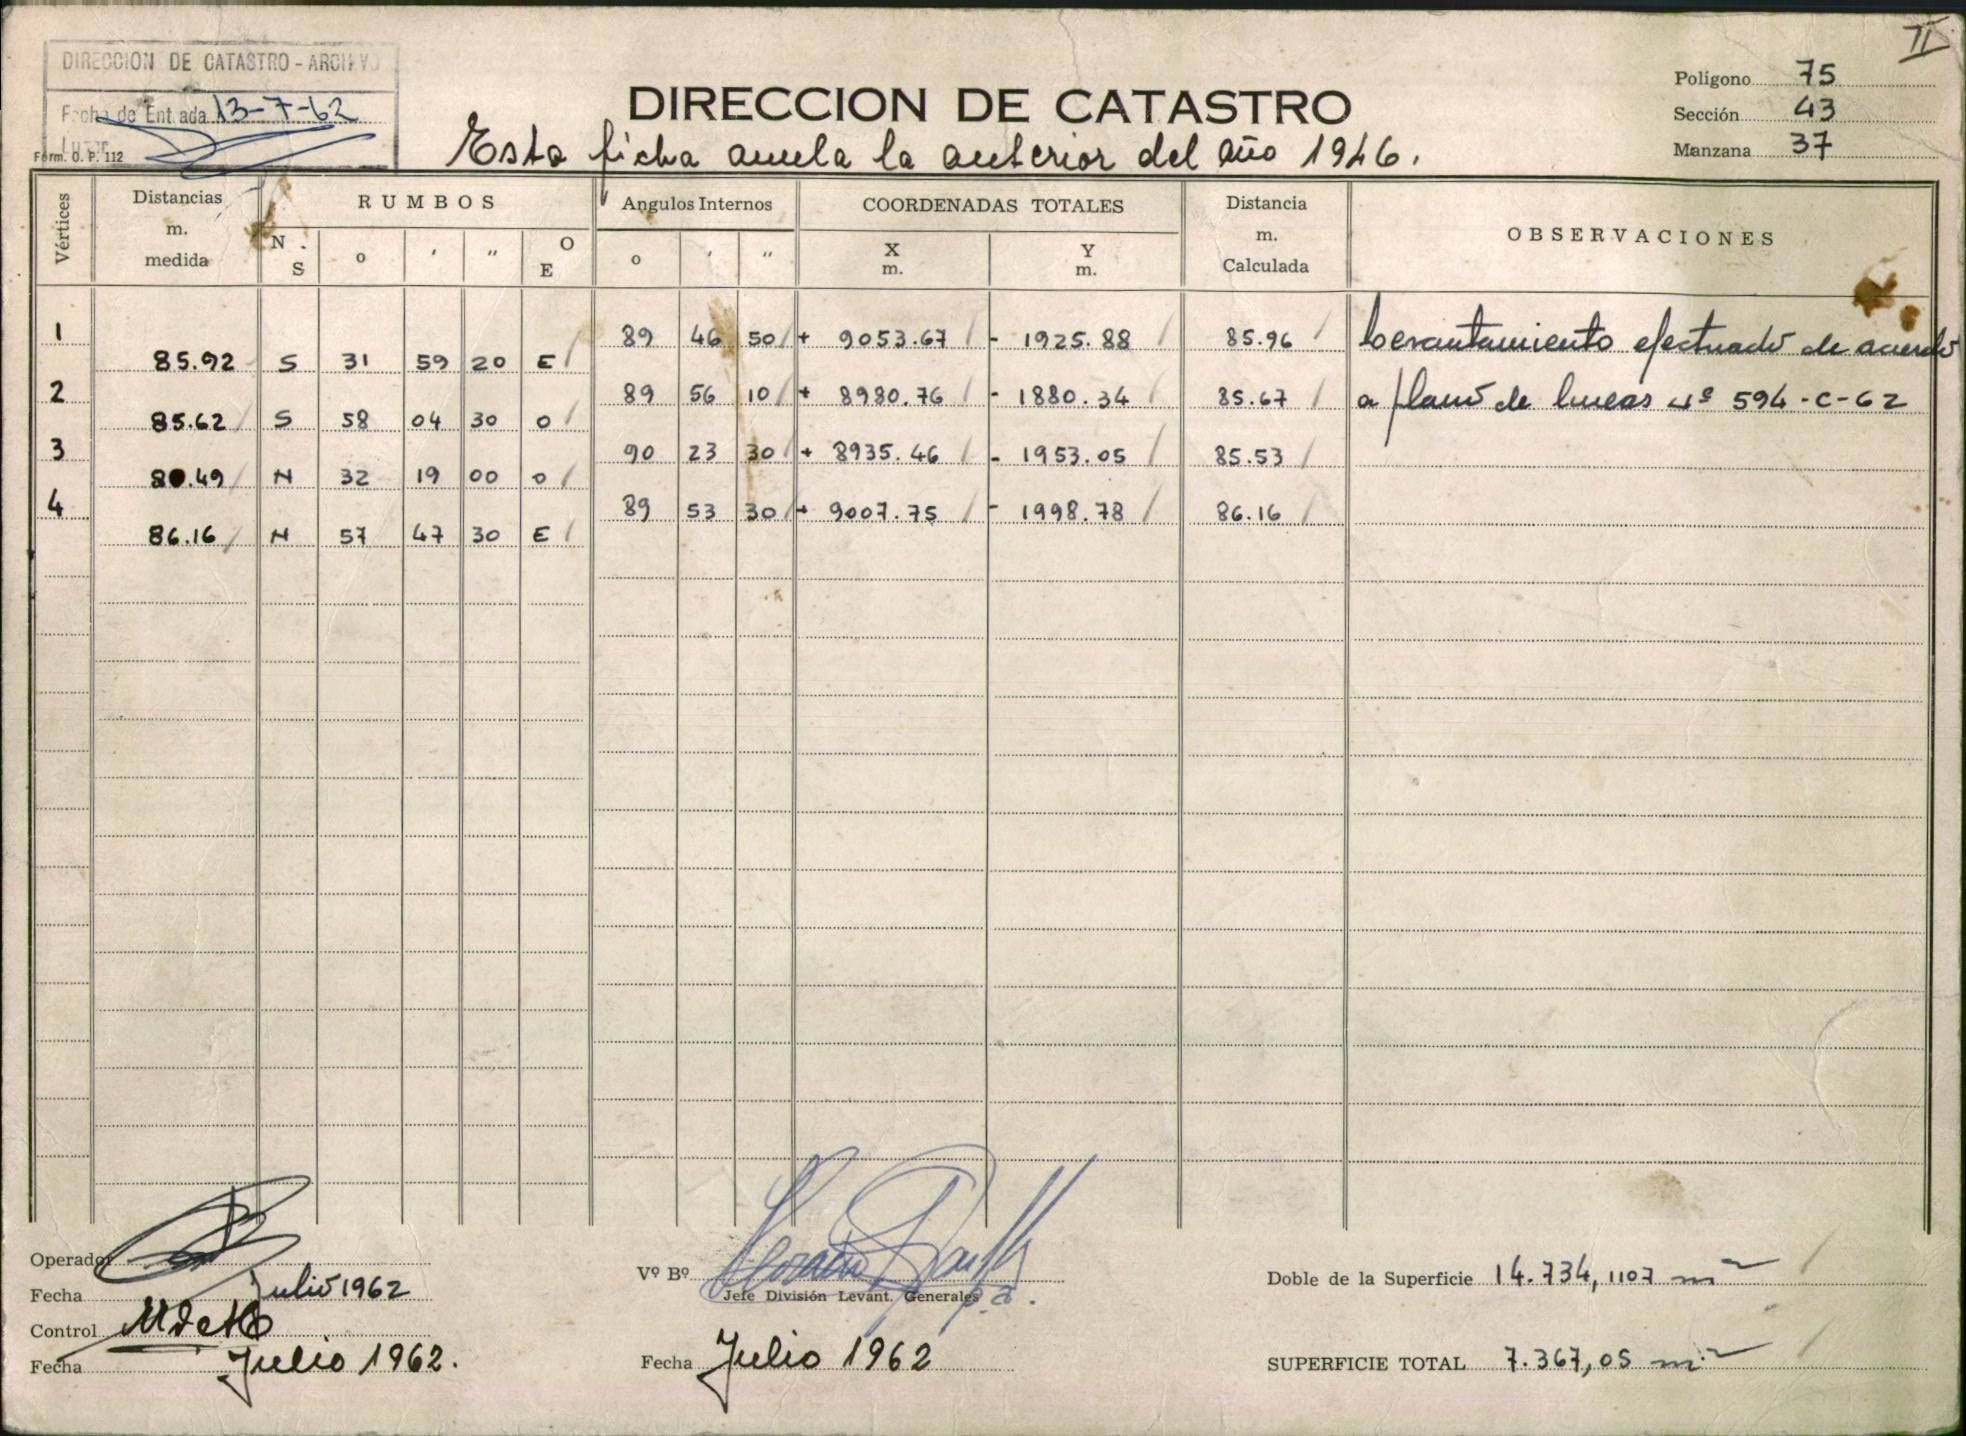 II
DIRECCION DE CATASTRO - ARCHIVO
Fecha de Entrada 13-7-62
Form. O. P. 112
DIRECCION DE CATASTRO
Esta ficha anula la anterior del año 1946.
Polígono 75
Sección 43
Manzana 37
Vértices
Distancias m. medida
RUMBOS
N. S o ' " O E
Angulos Internos
o ' "
COORDENADAS TOTALES
X m. Y m.
Distancia m. Calculada
OBSERVACIONES
1 89 46 50 + 9053.67 - 1925.88 85.96 Levantamiento efectuado de acuerdo
85.92 S 31 59 20 E
2 89 56 10 + 8980.76 - 1880.34 85.67 a plano de lineas Nº 594-C-62
85.62 S 58 04 30 O
3 90 23 30 + 8935.46 - 1953.05 85.53
.49 N 32 19 00 O
4 89 53 30 + 9007.75 - 1998.78 86.16
86.16 N 57 47 30 E
Operador
Fecha Julio 1962
Control
Fecha Julio 1962.
Vº Bº
Jefe División Levant. Generales p.a.
Fecha Julio 1962
Doble de la Superficie 14.734,1107 m²
SUPERFICIE TOTAL 7.367,05 m²